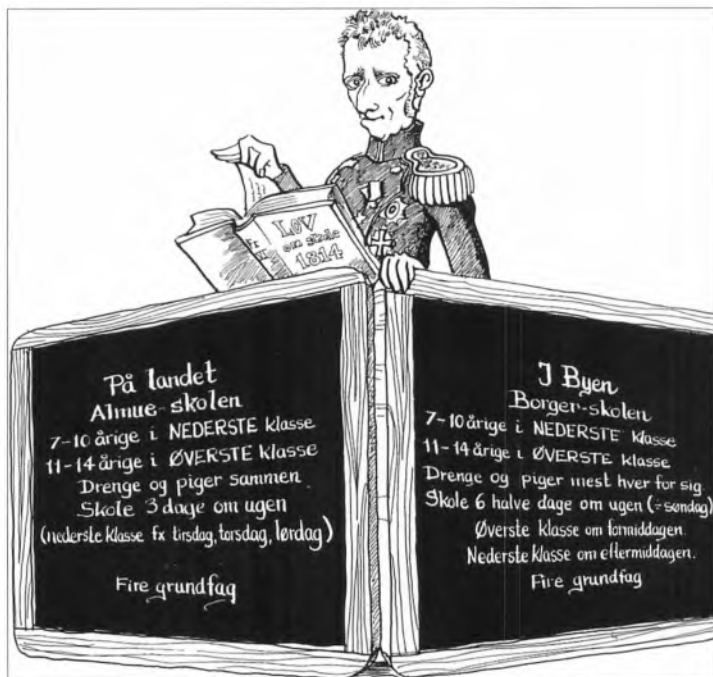 LOV
om skole
1814
Fr
VI
På landet
Almue-skolen
7-10 årige i NEDERSTE klasse
11-14 årige i ØVERSTE klasse
Drenge og piger sammen
Skole 3 dage om ugen
(nederste klasse fx tirsdag, torsdag, lørdag)
Fire grundfag
I Byen
Borger-skolen
7-10 årige i NEDERSTE klasse
11-14 årige i ØVERSTE klasse
Drenge og piger mest hver for sig.
Skole 6 halve dage om ugen (÷søndag)
Øverste klasse om formiddagen.
Nederste klasse om eftermiddagen.
Fire grundfag